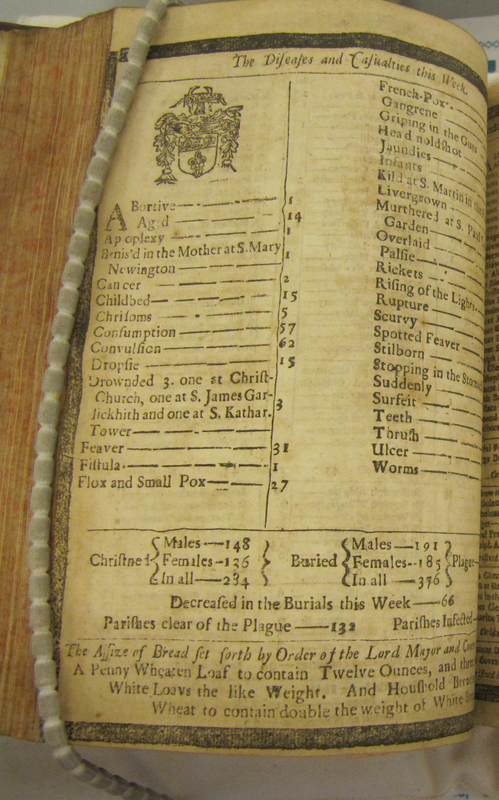 The Diſeaſes and Caſualties this Week.
ABortive 1
Aged 14
Apoplexy 1
in the Mother at S. Mary
Newington 1
Cancer 2
Childbed 15
Chriſoms 5
Conſumption 57
Convulſion 62
Dropſie 15
Drownded 3. one at Chriſt-
Church, one at S. James Gar-
lickhith and one at S. Kathar. 3
Tower
Feaver 31
Fiſtula 1
Flox and Small Pox 27
French-Pox
Gangrene
Griping in the Guts
Head
Jaundies
Infants
Kild at S. Martin in the
Livergrown
Murthered at S. Pauls
Garden
Overlaid
Palſie
Rickets
Riſing of the Lights
Rupture
Scurvy
Spotted Feaver
Stilborn
Stopping in the
Suddenly
Surfeit
Teeth
Thruſh
Ulcer
Worms
Chriſtned { Males 148 Females 136 In all 284 } Buried { Males 191 Females 185 In all 376 } Plague
Decreaſed in the Burials this Week 66
Pariſhes clear of the Plague 132 Pariſhes Infected
The Aſſize of Bread ſet forth by Order of the Lord Mayor and
A Penny Wheaten Loaf to contain Twelve Ounces, and
White Loavs the like Weight. And Houſhold
Wheat to contain double the weight of White